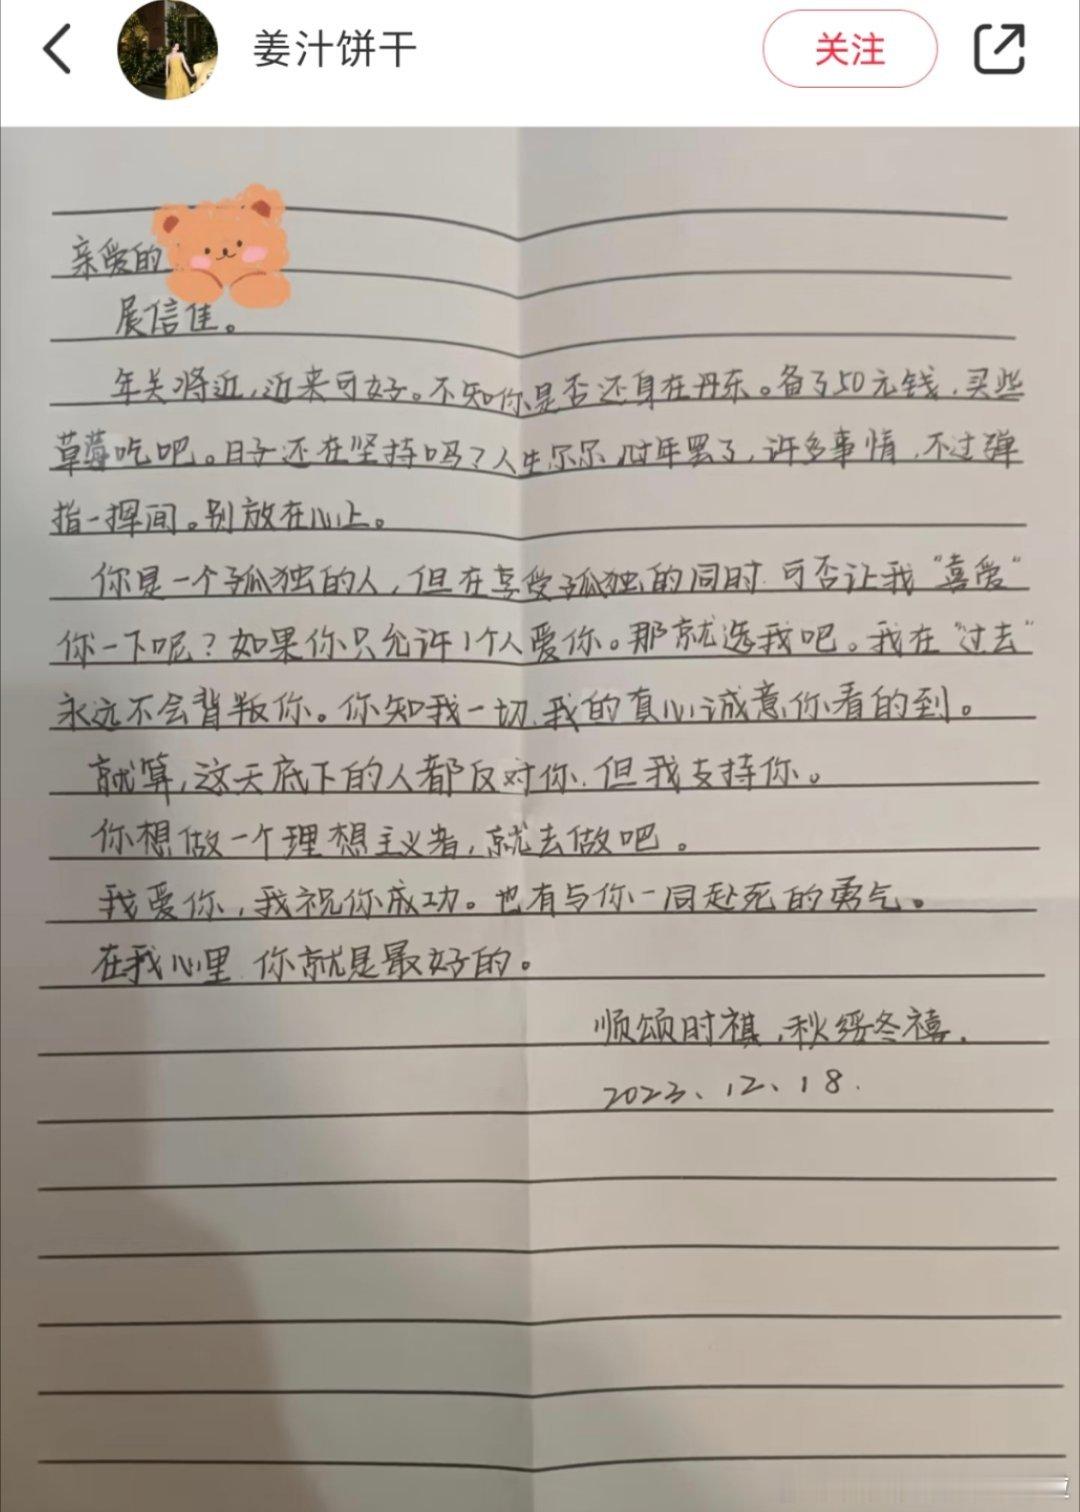 姜汁饼干
关注
亲爱的
展信佳。
年关将近,近来可好。不知你是否还身在丹东。备了50元钱,买些
草莓吃吧。日子还在坚持吗?人生尔尔,过年罢了,许多事情,不过弹
指一挥间。别放在心上。
你是一个孤独的人,但在享受孤独的同时.可否让我“喜爱”
你一下呢?如果你只允许1个人爱你。那就选我吧。我在“过去”
永远不会背叛你。你知我一切.我的真心诚意你看的到。
就算,这天底下的人都反对你.但我支持你。
你想做一个理想主义者,就去做吧。
我爱你,我祝你成功。也有与你一同赴死的勇气。
在我心里 你就是最好的。
顺颂时祺,秋绥冬禧.
2023、12、18.